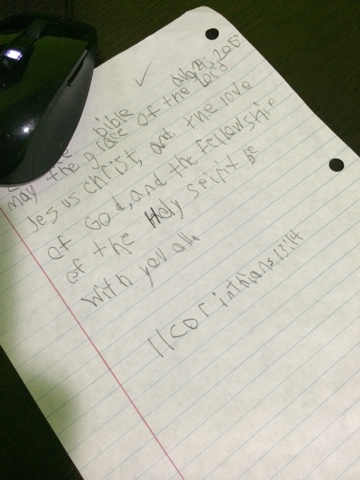 bible
may the grace of the Lord
Jesus christ, and the love
of God, and the fellowship
of the Holy spirit be
with you all.
II Corinthians 13:14